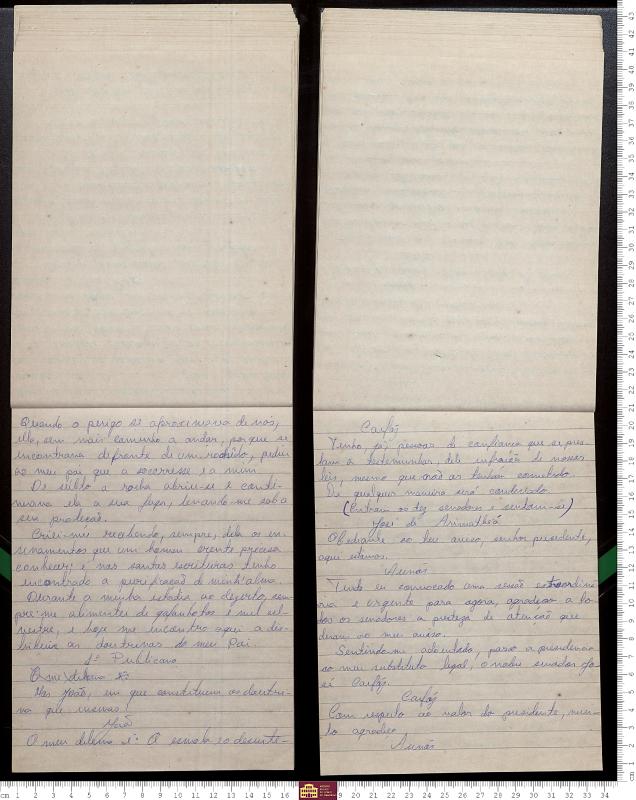 Quando o perigo se aproximava de nós,
ella, sem mais caminho a andar, porque se
encontrava defronte de um rochido, pediu
ao meu pai que a socorresse e a mim
De súbito a rocha abriu-se e conti-
nuava ela a sua fuga, levando-me sob a
sua proteção.
Criei-me recebendo, sempre, dela os en-
sinamentos que um homem crente precisa
conhecer; e nas santas escrituras tenho
encontrado a purificação de minh'alma.
Durante a minha estadia ao dezerto, sem-
pre me alimentei de gafanhotos e mel sil-
vestre, e hoje me encontro aqui a dis-
as doutrinas do meu Pai.
1º Publicano
Mas João, em que constituem as doutri-
nas que ensinas?
João
O meu dilema é: A esmola ao desinte-
Caifáz
Tenho, já, pessoas de confiança que se pres-
tam a testemunhar, dele infração de nossas
leis, mesmo que não as hajam cometido.
De qualquer maneira será condenado.
(Entram os dez senadores e sentam-se)
José de Arimathéa
Obediente ao teu aviso, senhor presidente,
aqui estamos.
Annás
Tendo eu convocado uma sessão extraordiná
ria e urgente para agora, agradeço a to-
dos os senadores a presteza de atenção que
deram ao meu aviso.
Sentindo-me adoentado, passo a presidencia
ao meu substituto legal, o nobre senador Jo
sé Caifáz.
Caifáz
Com respeito ao valor do presidente, mui-
to agradeço
Annás